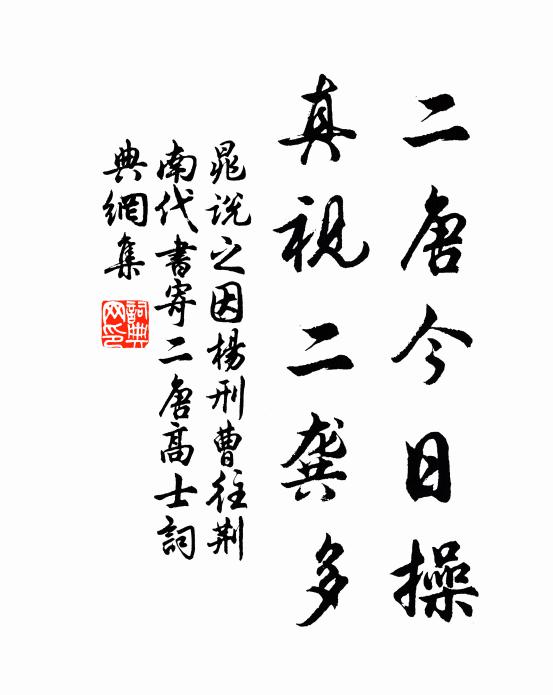 二唐今日操
真视二龚多
晁说之因楊刑曹往荆
南代書寄二唐高士詞
典網集
詞典
网印